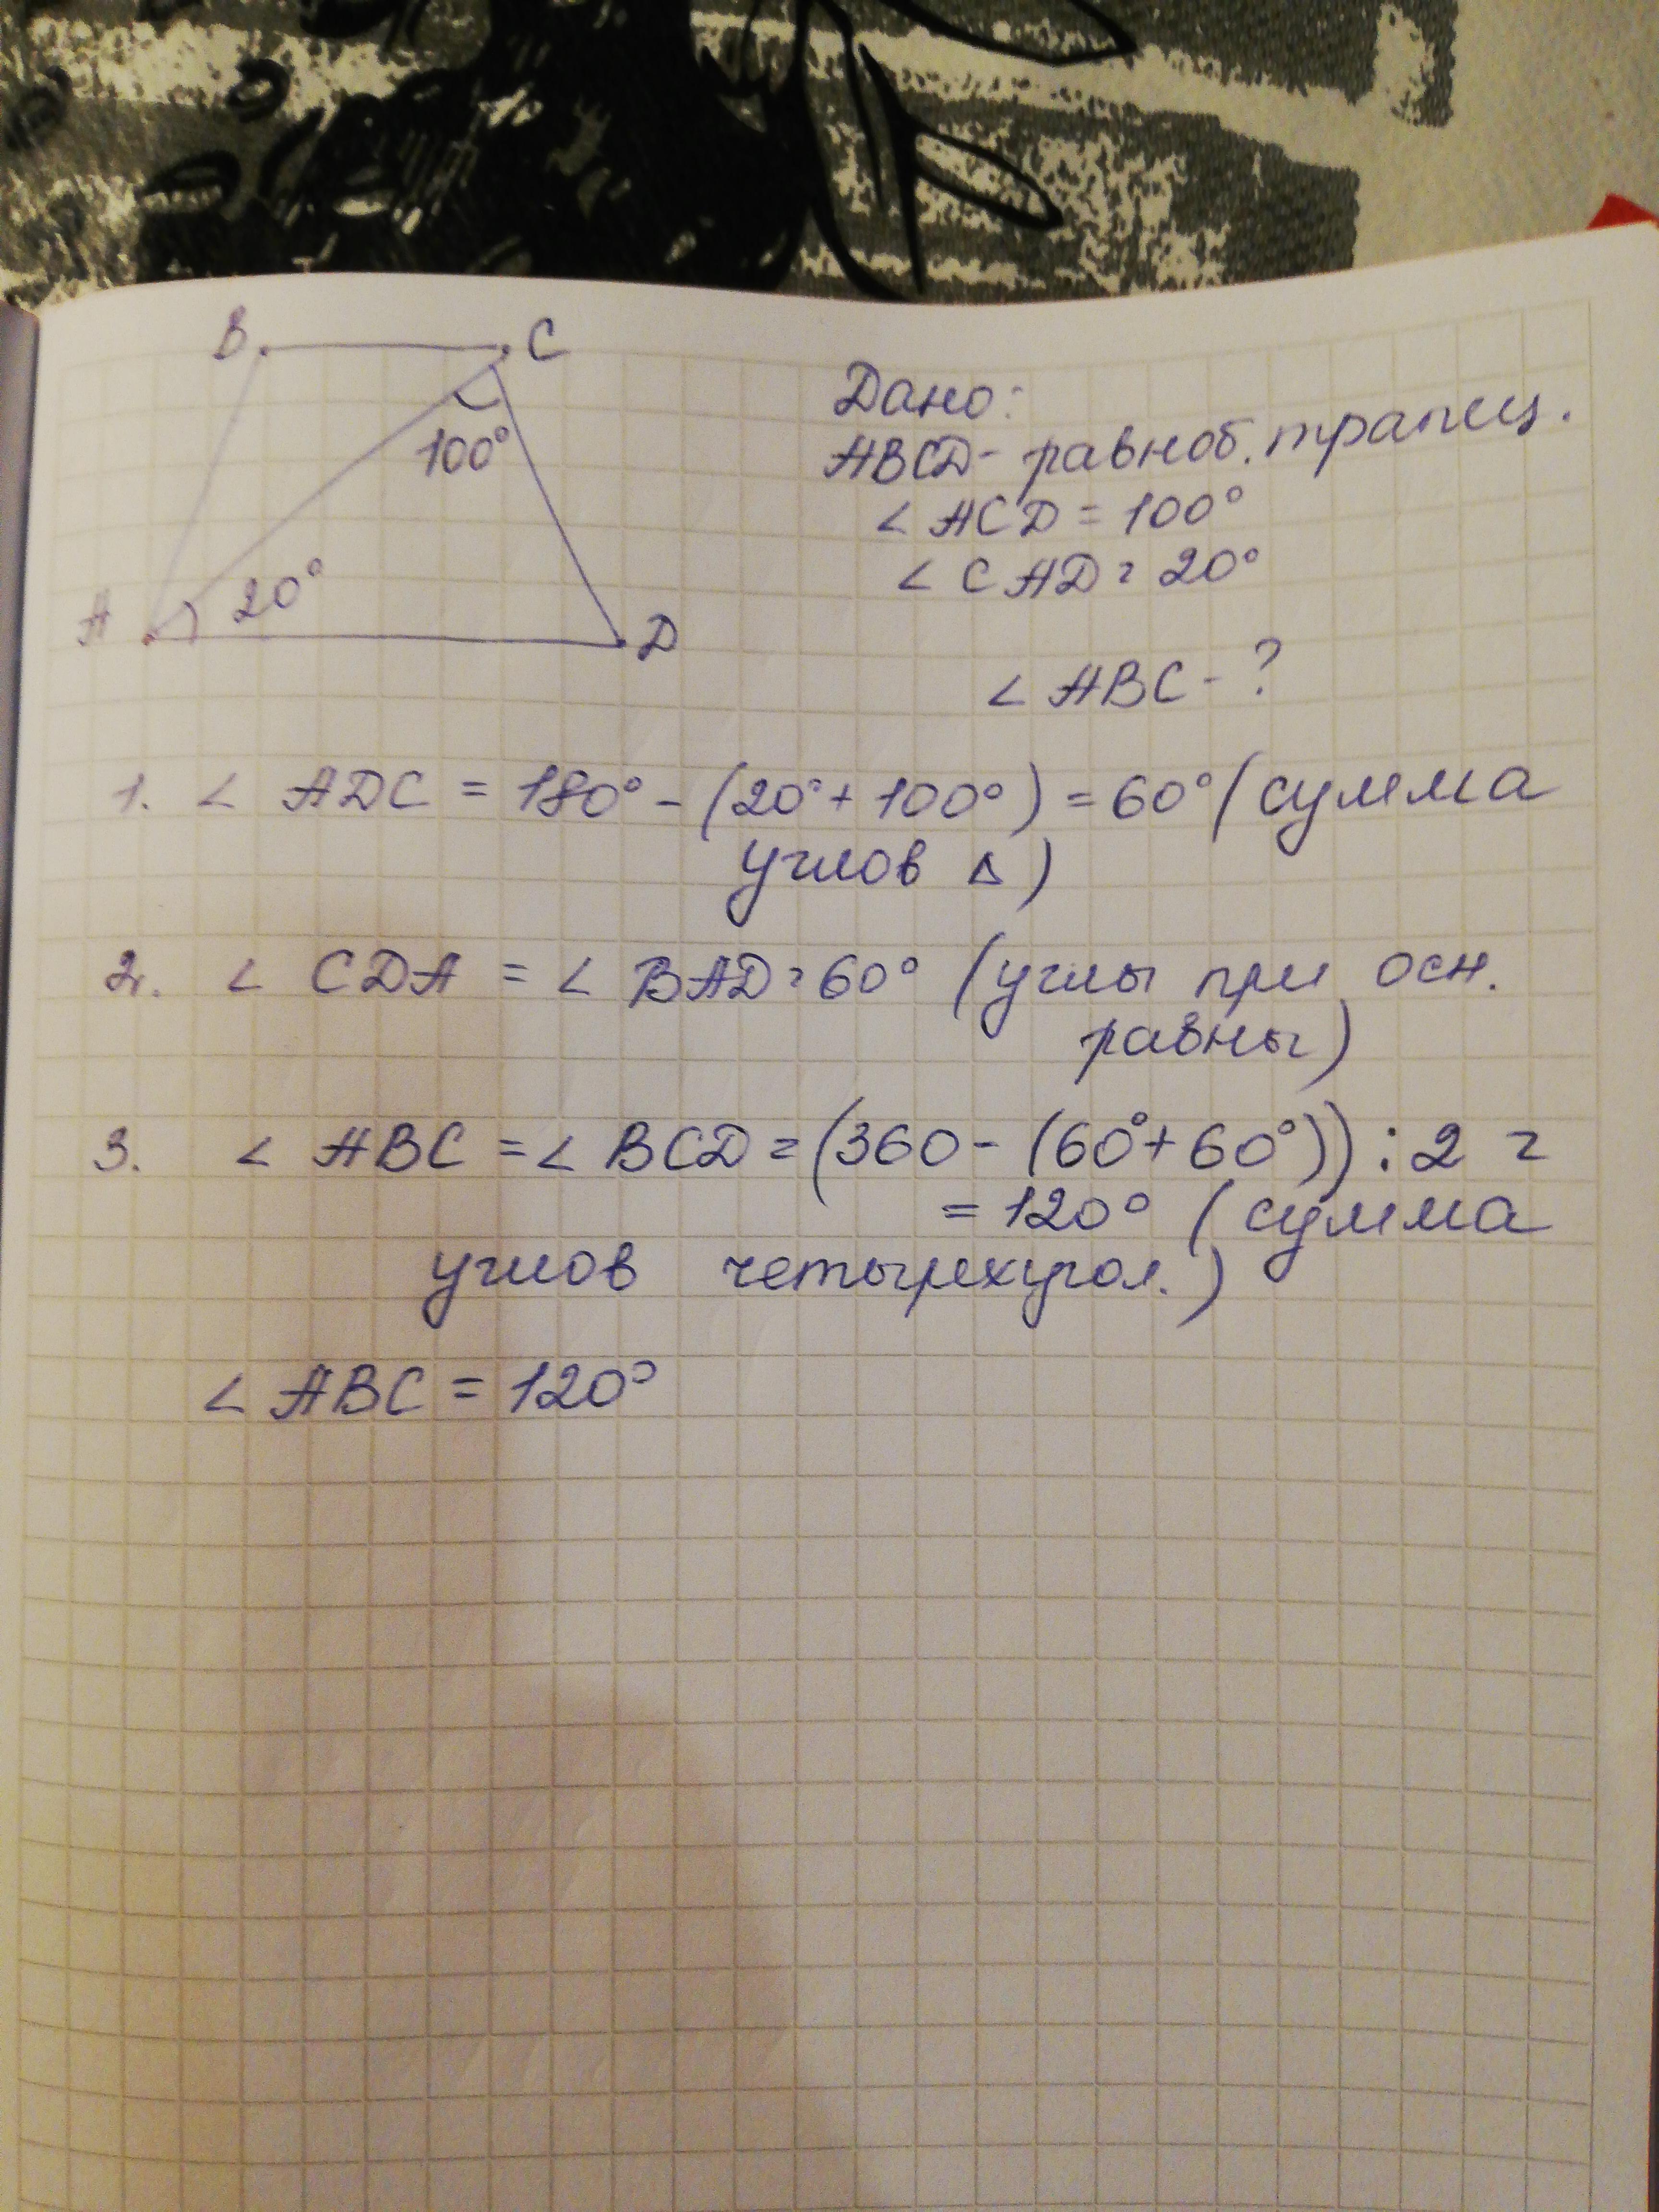 B C
100°
20°
A D
Дано:
ABCD - равноб. трапец.
∠ ACD = 100°
∠ CAD = 20°
∠ ABC - ?
1. ∠ ADC = 180° - (20° + 100°) = 60° (сумма
углов Δ)
2. ∠ CDA = ∠ BAD = 60° (углы при осн.
равны)
3. ∠ ABC = ∠ BCD = (360 - (60° + 60°)) : 2 =
= 120° (сумма
углов четырехугол.)
∠ ABC = 120°